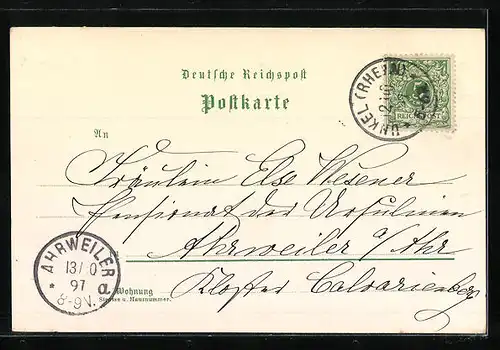 Deutsche Reichspost
Postkarte
UNKEL (RHEIN)
REICHSPOST
An
Fräulein Else Wesener
Pensionat der Ursulinen
Ahrweiler a/Ahr
Kloster Calvarienberg
AHRWEILER
13/10
97
8-9V.
a
Wohnung
Strasse u. Hausnummer.